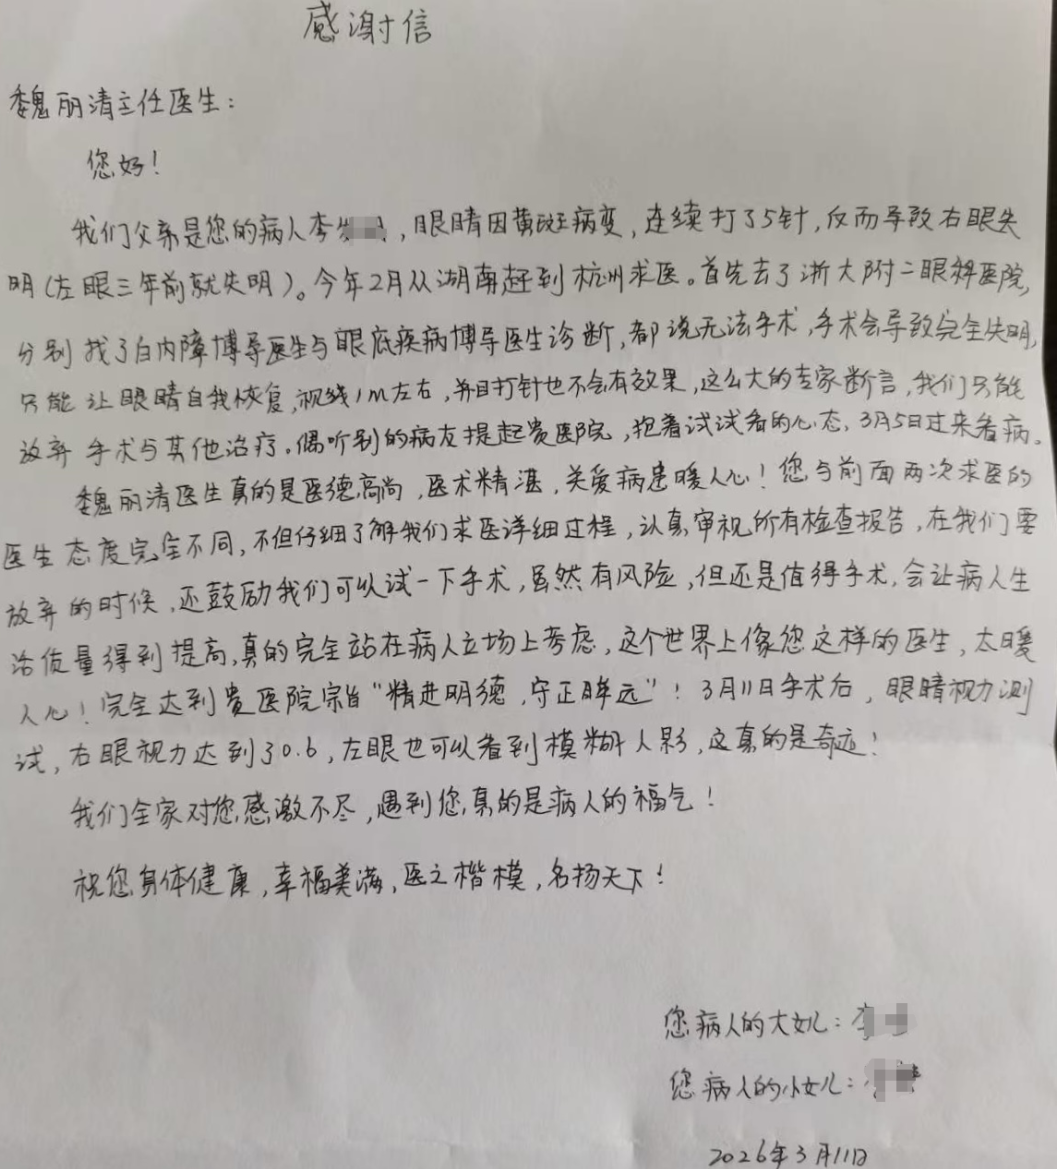 感谢信
魏丽清主任医生：
您好！
我们父亲是您的病人李，眼睛因黄斑病变，连续打了5针，反而导致右眼失
明（左眼三年前就失明）。今年2月从湖南赶到杭州求医。首先去了浙大附二眼科医院，
分别找了白内障博导医生与眼底疾病博导医生诊断，都说无法手术，手术会导致完全失明，
只能让眼睛自我恢复，视线1m左右，并且打针也不会有效果，这么大的专家断言，我们只能
放弃手术与其他治疗。偶听别的病友提起贵医院，抱着试试看的心态，3月5日过来看病。
魏丽清医生真的是医德高尚，医术精湛，关爱病患暖人心！您与前面两次求医的
医生态度完全不同，不但仔细了解我们求医详细过程，认真审视所有检查报告，在我们要
放弃的时候，还鼓励我们可以试一下手术，虽然有风险，但还是值得手术，会让病人生
活质量得到提高，真的完全站在病人立场上考虑，这个世界上像您这样的医生，太暖
人心！完全达到贵医院宗旨“精进明德，守正眸远”！3月11日手术后，眼睛视力测
试，右眼视力达到了0.6，左眼也可以看到模糊人影，这真的是奇迹！
我们全家对您感激不尽，遇到您真的是病人的福气！
祝您身体健康，幸福美满，医之楷模，名扬天下！
您病人的大女儿：李
您病人的小女儿：
2026年3月11日